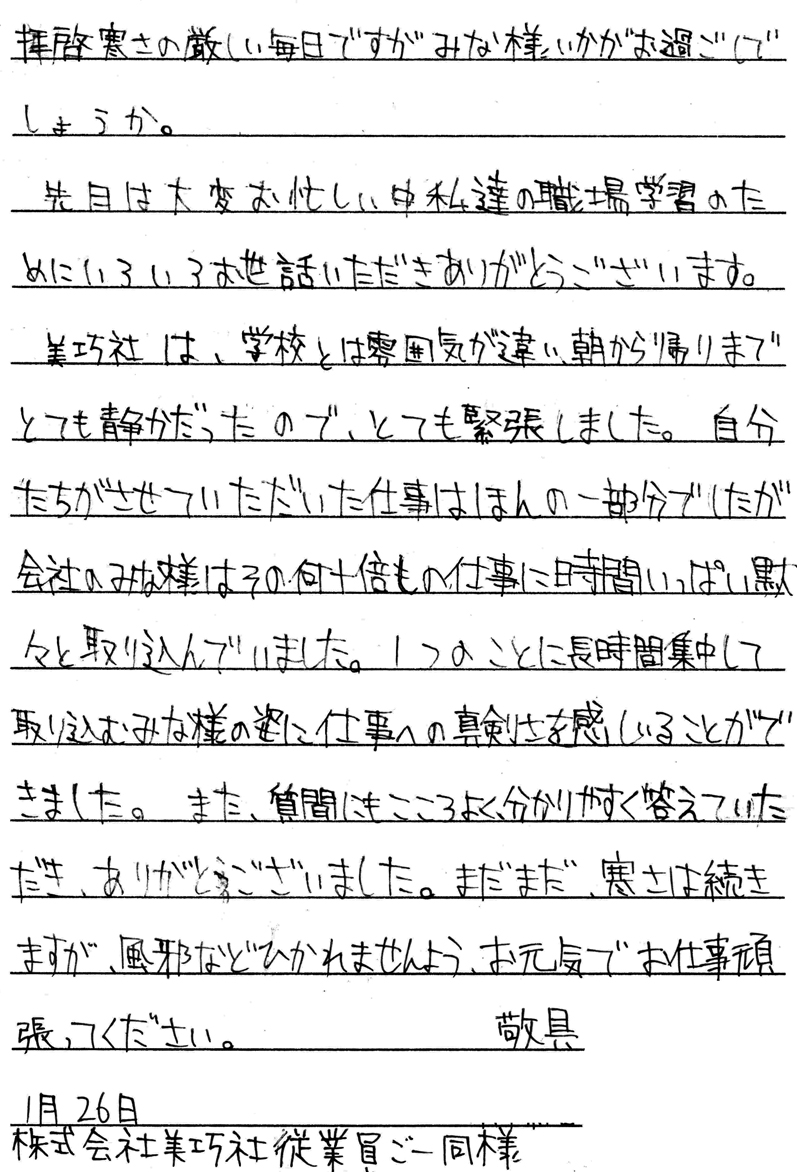 拝啓寒さの厳しい毎日ですがみな様いかがお過ごしで
しょうか。
先日は大変お忙しい中私達の職場学習のた
めにいろいろお世話いただきありがとうございます。
美巧社は、学校とは雰囲気が違い、朝から帰りまで
とても静かだったので、とても緊張しました。自分
たちがさせていただいた仕事はほんの一部分でしたが
会社のみな様はその何十倍もの仕事に日時間いっぱい黙
々と取り込んでいました。1つのことに長時間集中して
取り込むみな様の姿に仕事への真剣さを感じることがで
きました。また、質問にもこころよく、分かりやすく答えていた
だき、ありがとうございました。まだまだ、寒さは続き
ますが、風邪などひかれませんよう、お元気でお仕事頑
張ってください。 敬具
1月26日
株式会社美巧社従業員ご一同様